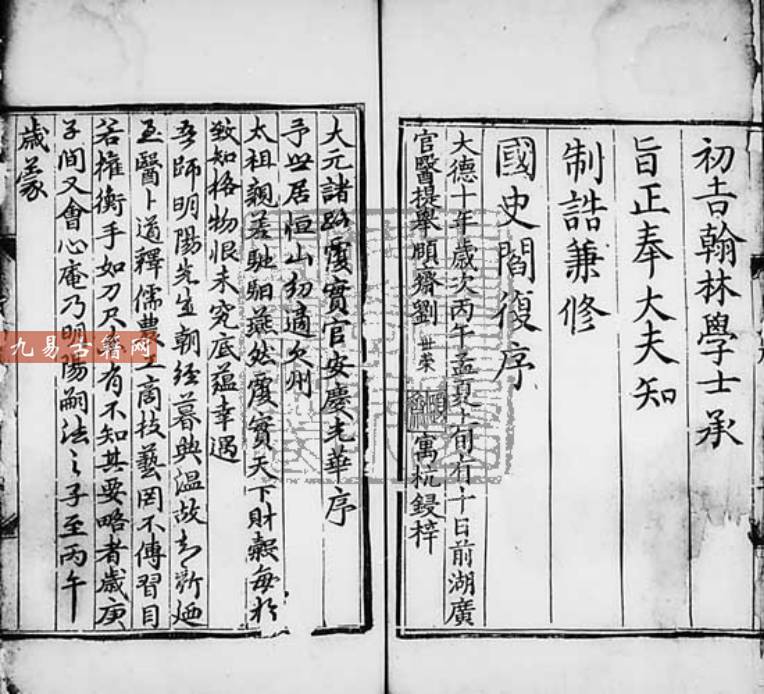 初吉翰林學士承
旨正奉大夫知
制誥兼修
國史閻復序
大德十年歲次丙午孟夏上旬有十日前湖廣
官醫提舉頤齋劉世榮 寓杭鋟梓
大元諸路覆實官安慶尤華序
予世居恒山初適大州
太祖親差馳驲燕然覆實天下財穀每於
致知格物恨未究底蘊幸遇
吾師明陽先生朝經暮典溫故知新廼
至醫卜道釋儒農工商技藝罔不傳習目
若權衡手如刀尺無有不知其要略者歲庚
子間又會心庵乃明陽嗣法之子至丙午
歲蒙
九易古籍网